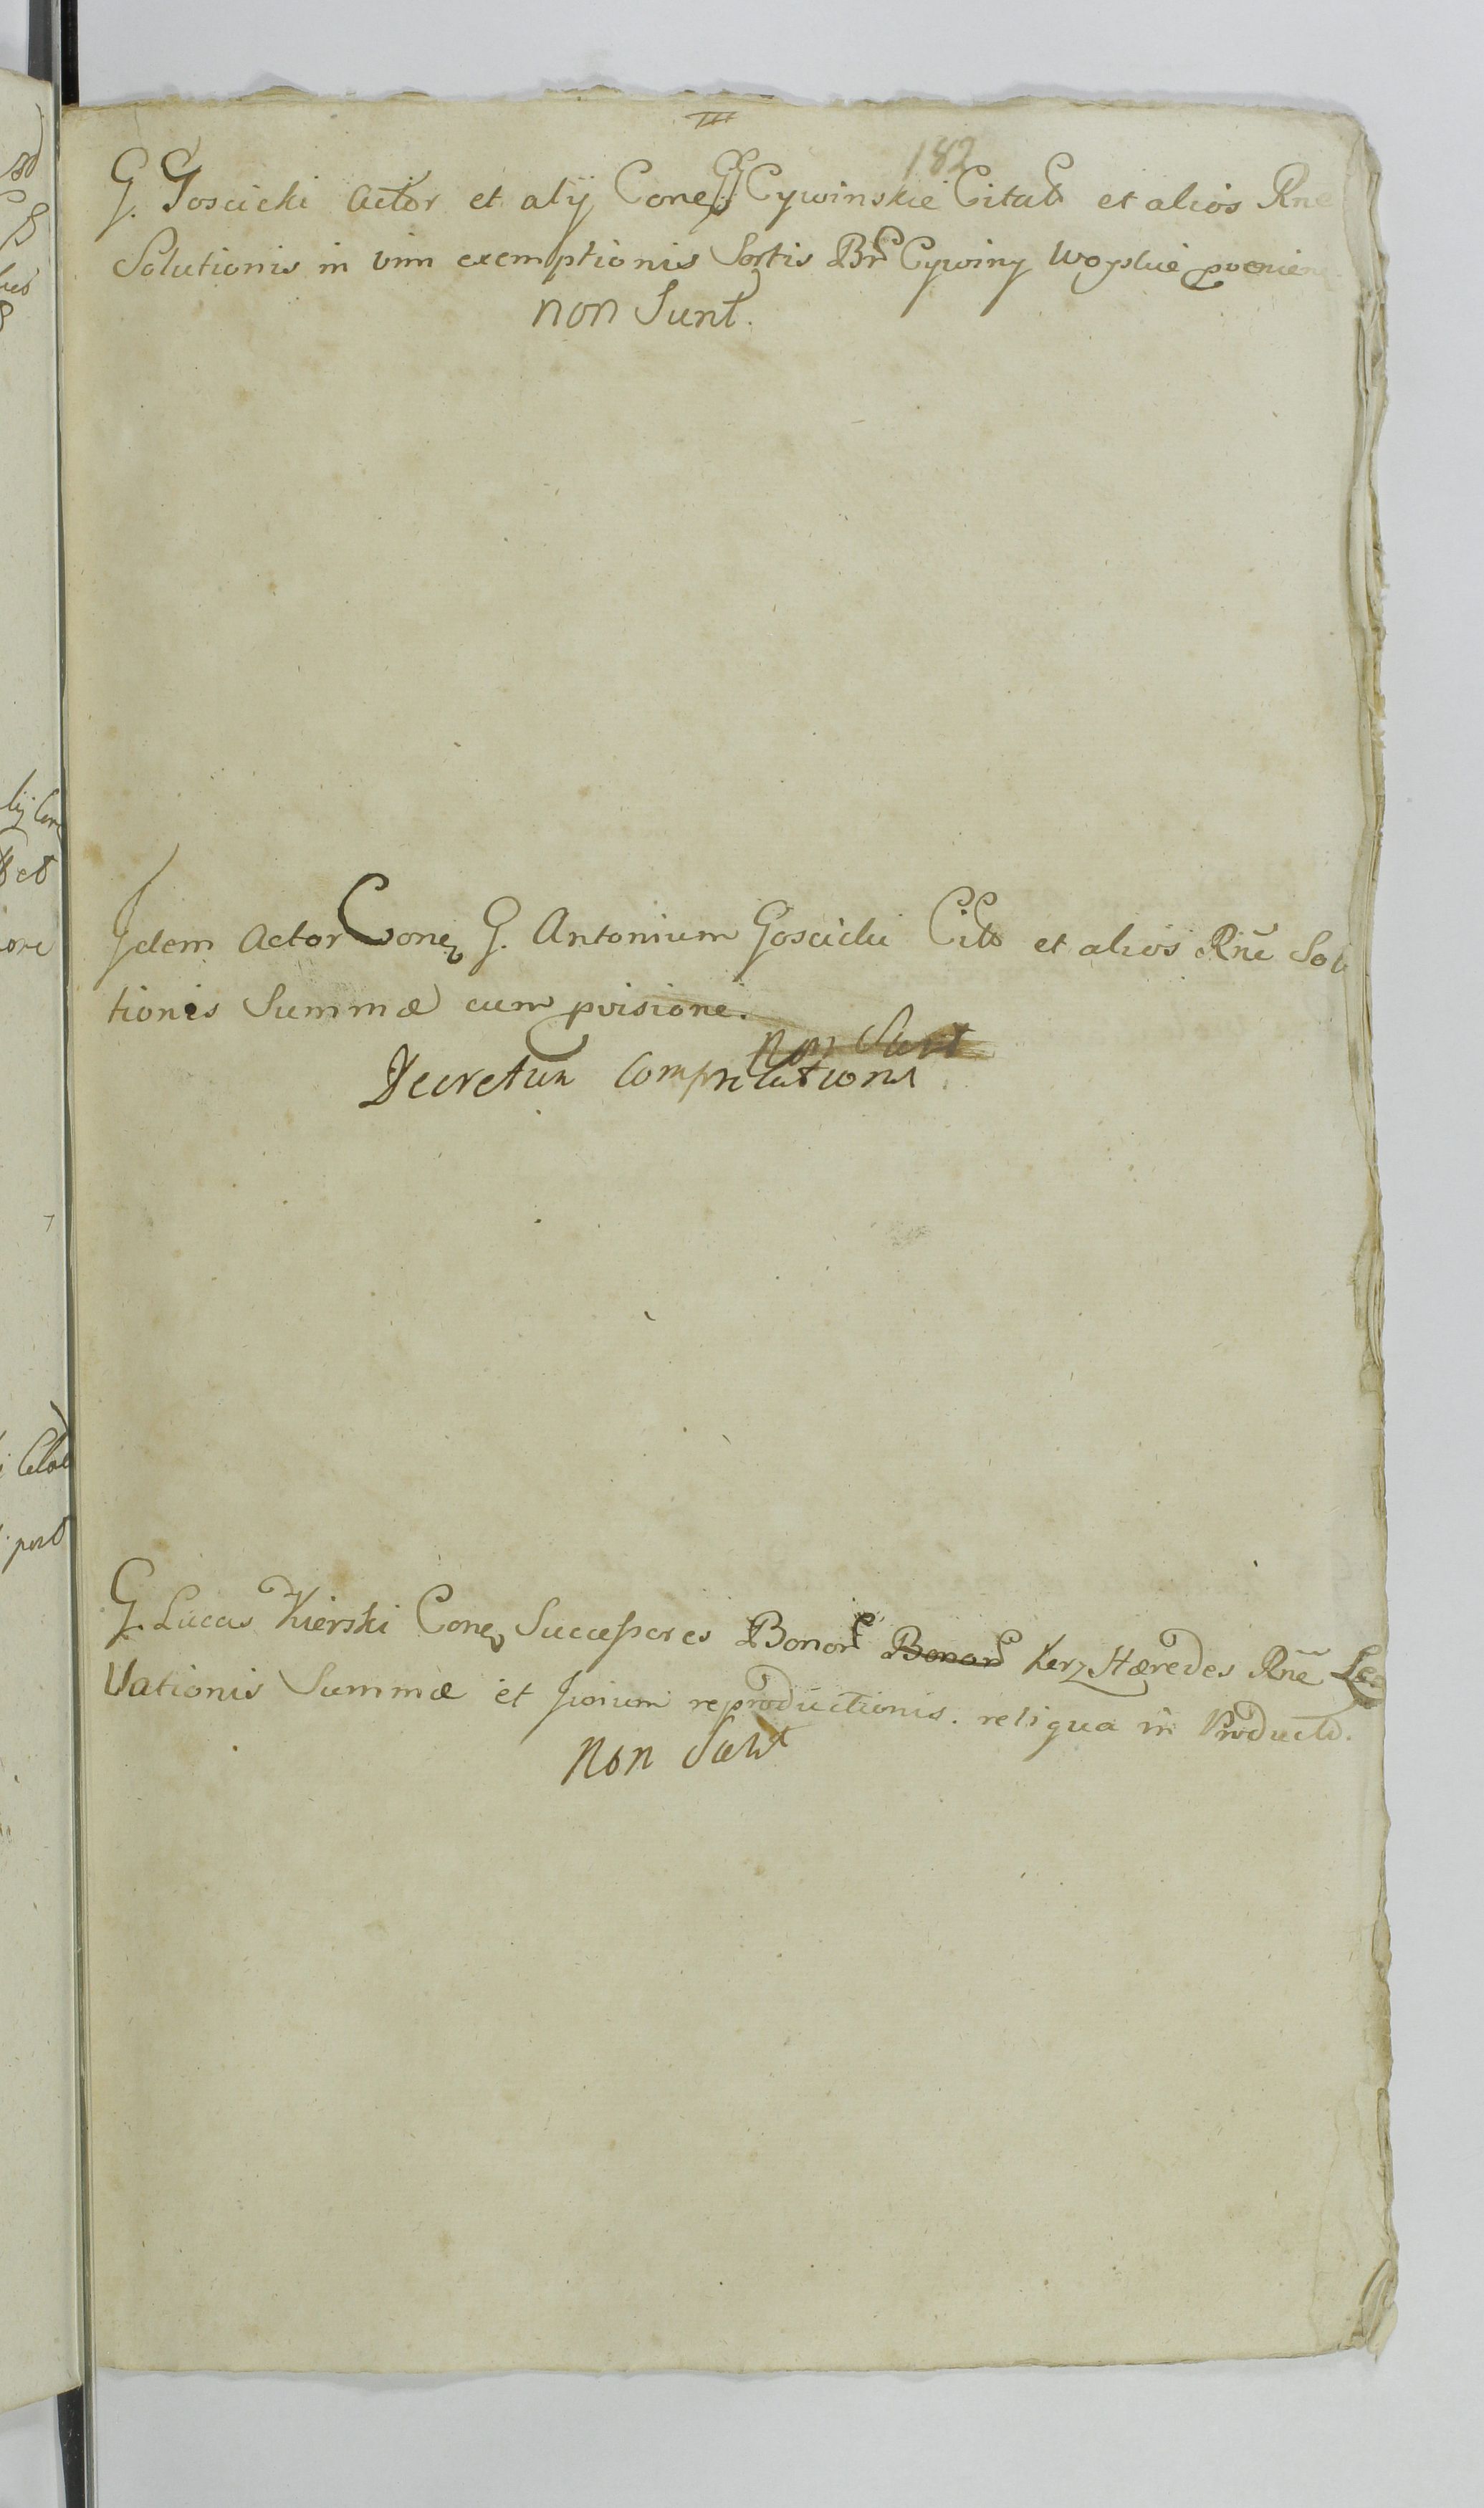 III
182
G. Goscicki Actor et alij Conea GG Cywinskie Citatos et alios Rne
Solutionis in vim exemptionis Sortis Br Cywiny Woyskie
non Sunt.
Idem Actor Conea G. Antonium Goscicki Citt et alios Rne Solu
tionis Summæ cum pvisione.
non Sunt
Decretum
G. Lucas Kierski Conea Successores Bonor Bonor Kerz Hæredes Rne Le
vationis Summæ et Jurium reproductionis. reliqua in Producto.
non Sunt